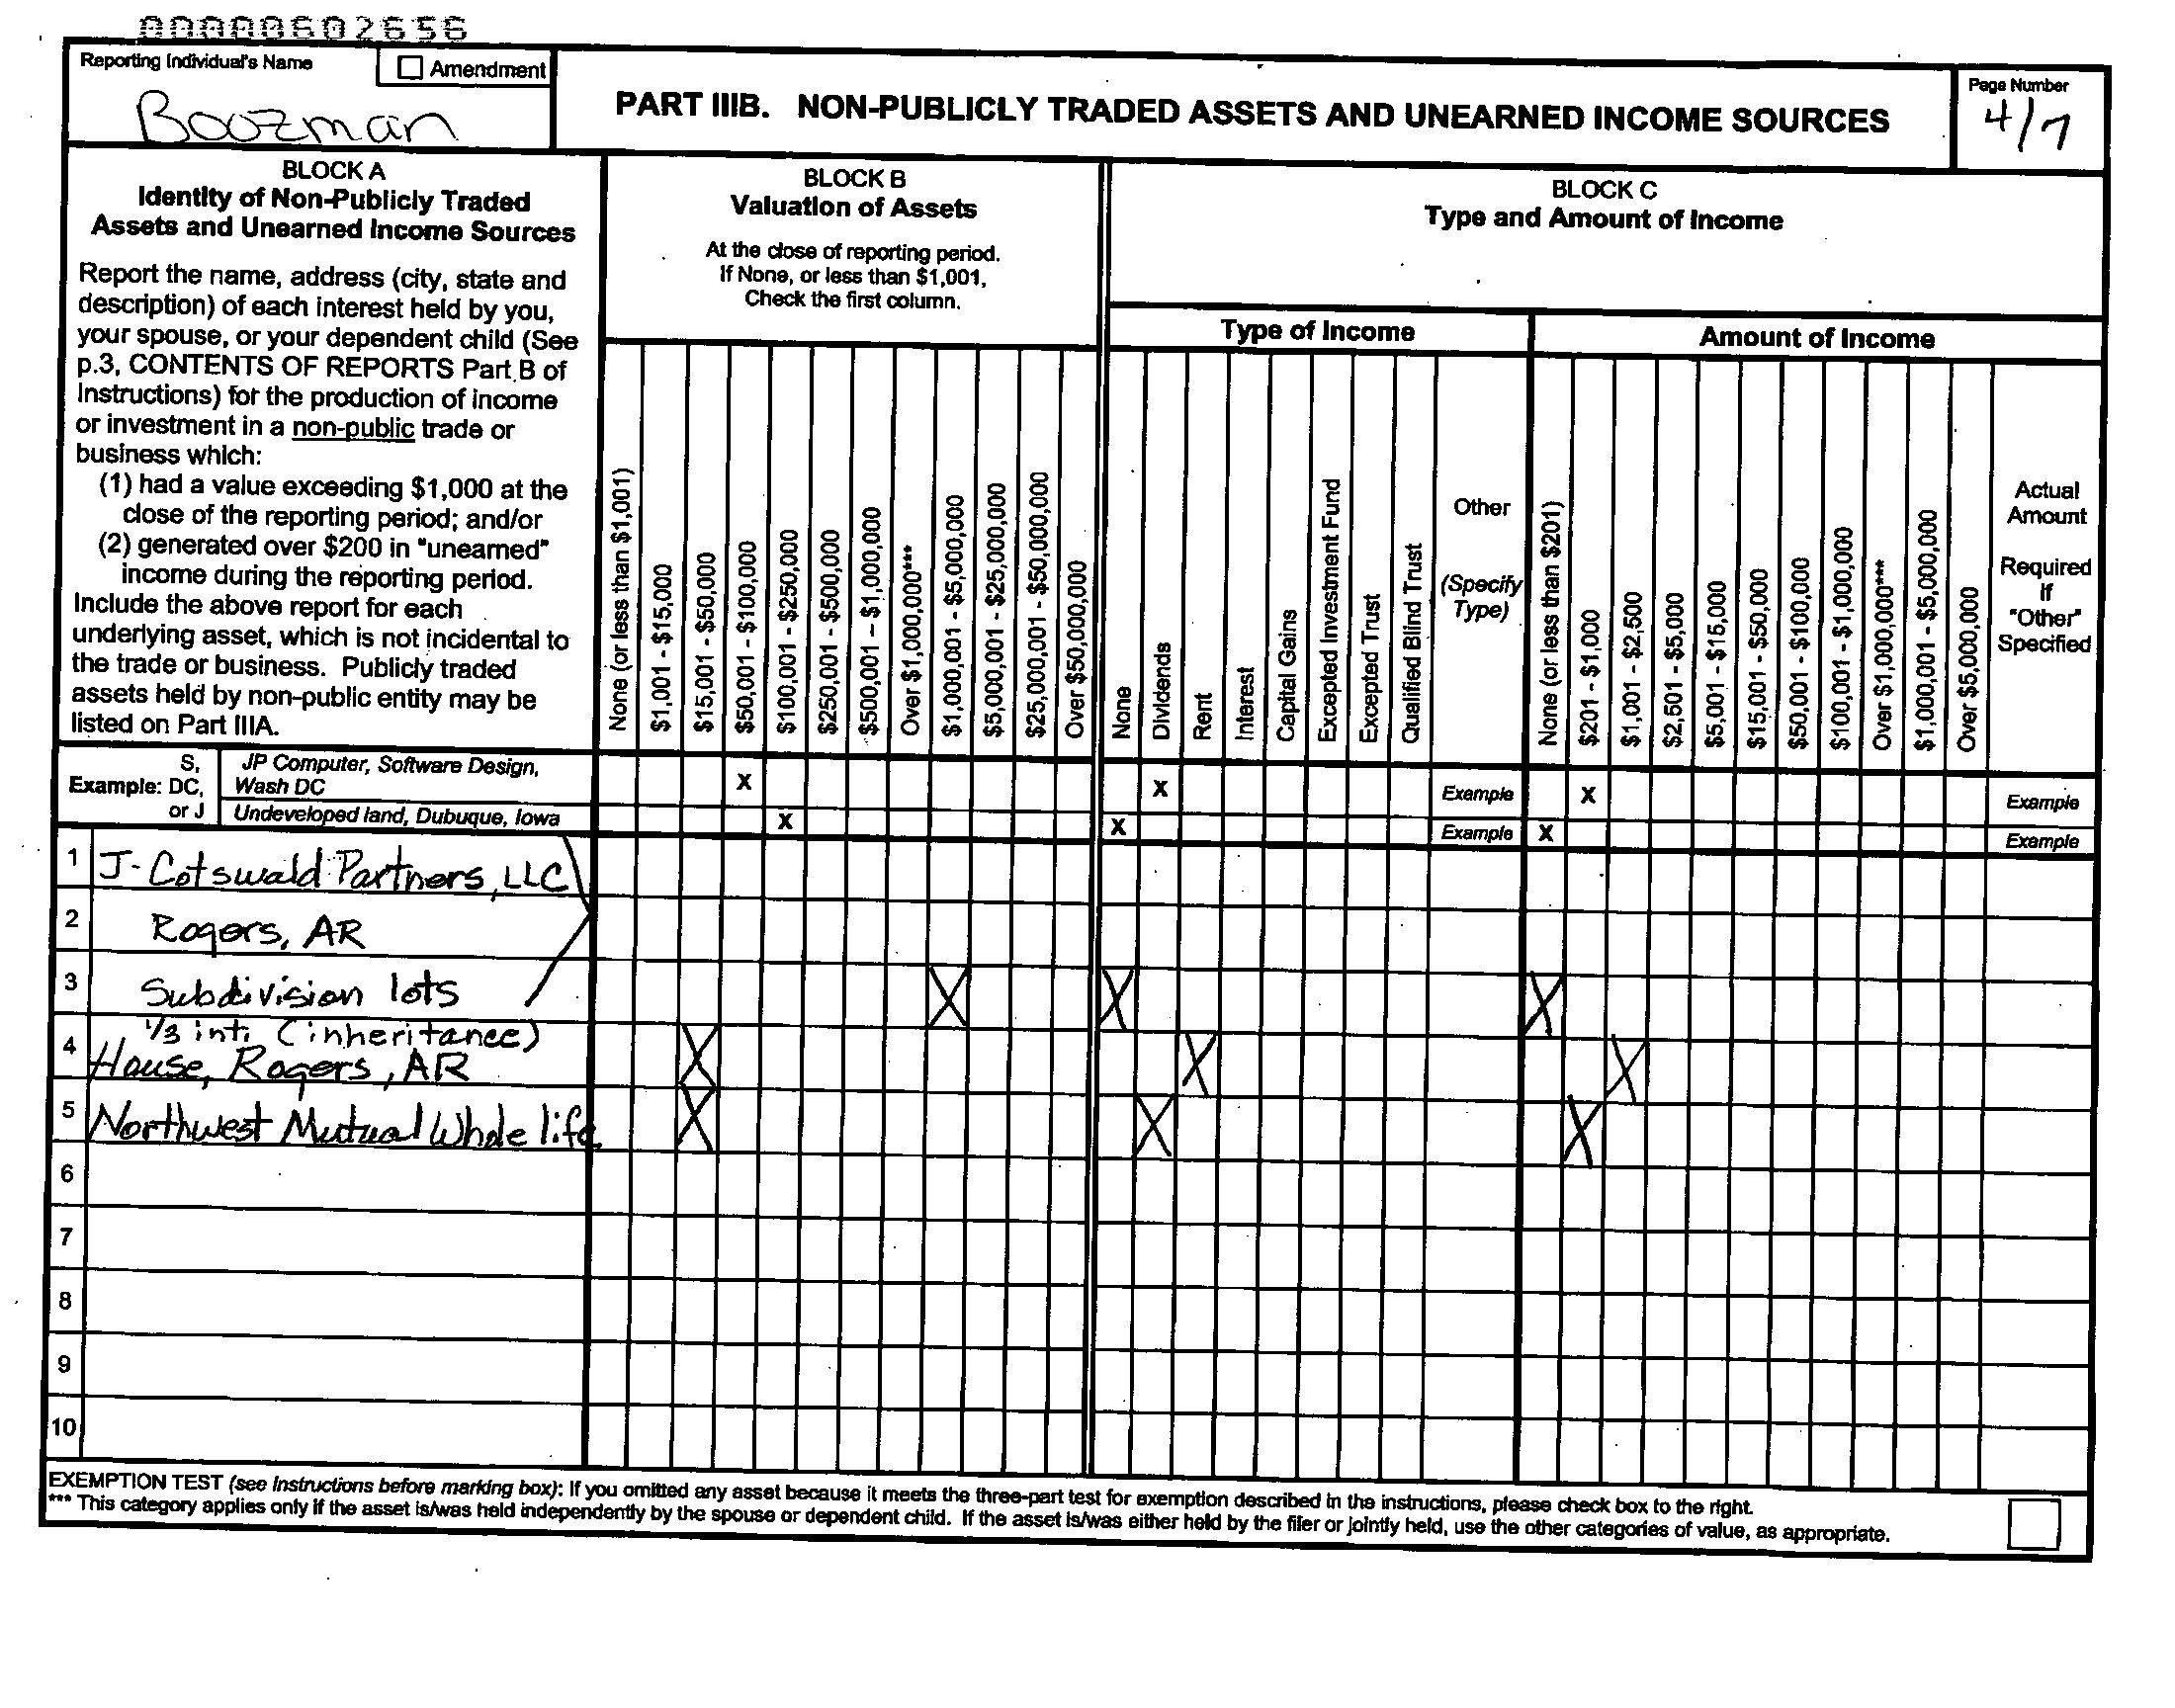 00000602656
Reporting Individual's Name
Amendment
Boozman
PART IIIB. NON-PUBLICLY TRADED ASSETS AND UNEARNED INCOME SOURCES
Page Number
4/7
BLOCK A
Identity of Non-Publicly Traded
Assets and Unearned Income Sources
Report the name, address (city, state and
description) of each interest held by you,
your spouse, or your dependent child (See
p.3, CONTENTS OF REPORTS Part B of
Instructions) for the production of income
or investment in a non-public trade or
business which:
(1) had a value exceeding $1,000 at the
close of the reporting period; and/or
(2) generated over $200 in "unearned"
income during the reporting period.
Include the above report for each
underlying asset, which is not incidental to
the trade or business. Publicly traded
assets held by non-public entity may be
listed on Part IIIA.
BLOCK B
Valuation of Assets
At the close of reporting period.
If None, or less than $1,001,
Check the first column.
None (or less than $1,001)
$1,001 - $15,000
$15,001 - $50,000
$50,001 - $100,000
$100,001 - $250,000
$250,001 - $500,000
$500,001 – $1,000,000
Over $1,000,000***
$1,000,001 - $5,000,000
$5,000,001 - $25,000,000
$25,000,001 - $50,000,000
Over $50,000,000
BLOCK C
Type and Amount of Income
Type of Income
None
Dividends
Rent
Interest
Capital Gains
Excepted Investment Fund
Excepted Trust
Qualified Blind Trust
Other
(Specify
Type)
Amount of Income
None (or less than $201)
$201 - $1,000
$1,001 - $2,500
$2,501 - $5,000
$5,001 - $15,000
$15,001 - $50,000
$50,001 - $100,000
$100,001 - $1,000,000
Over $1,000,000***
$1,000,001 - $5,000,000
Over $5,000,000
Actual
Amount
Required
If
"Other"
Specified
S,
Example: DC,
or J
JP Computer, Software Design,
Wash DC
X X Example X Example
Undeveloped land, Dubuque, Iowa X X Example X Example
1 J- Cotswald Partners, LLC
2 Rogers, AR
3 Subdivision lots X X X
1/3 int. (inheritance)
4 House, Rogers, AR X X X
5 Northwest Mutual Whole life X X X
6
7
8
9
10
EXEMPTION TEST (see instructions before marking box): If you omitted any asset because it meets the three-part test for exemption described in the instructions, please check box to the right.
*** This category applies only if the asset is/was held independently by the spouse or dependent child. If the asset is/was either held by the filer or jointly held, use the other categories of value, as appropriate.